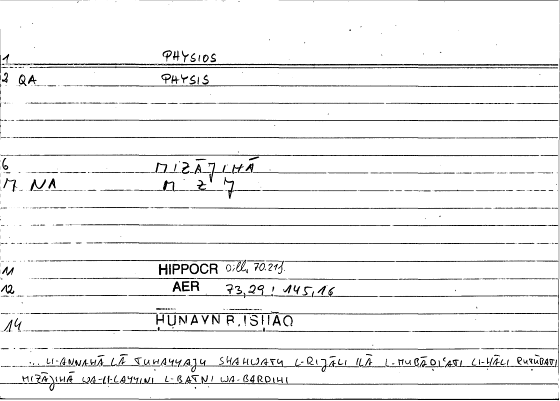 1 PHYSIOS
2 QA PHYSIS
6 MIZĀJIHĀ
M NA M Z J
11 HIPPOCR Diller 70.21f.
12 AER 73,29 : 145,16
14 ḤUNAYN B. ISḤĀQ
... LI-ANNAHĀ LĀ TUHAYYAJU SHAHWATU L-RIJĀLI ILĀ L-MUBĀḌAʿATI LI-ḤĀLI RUṬŪBATI
MIZĀJIHĀ WA-LI-LAYYINI L-BAṬNI WA-BARDIHI